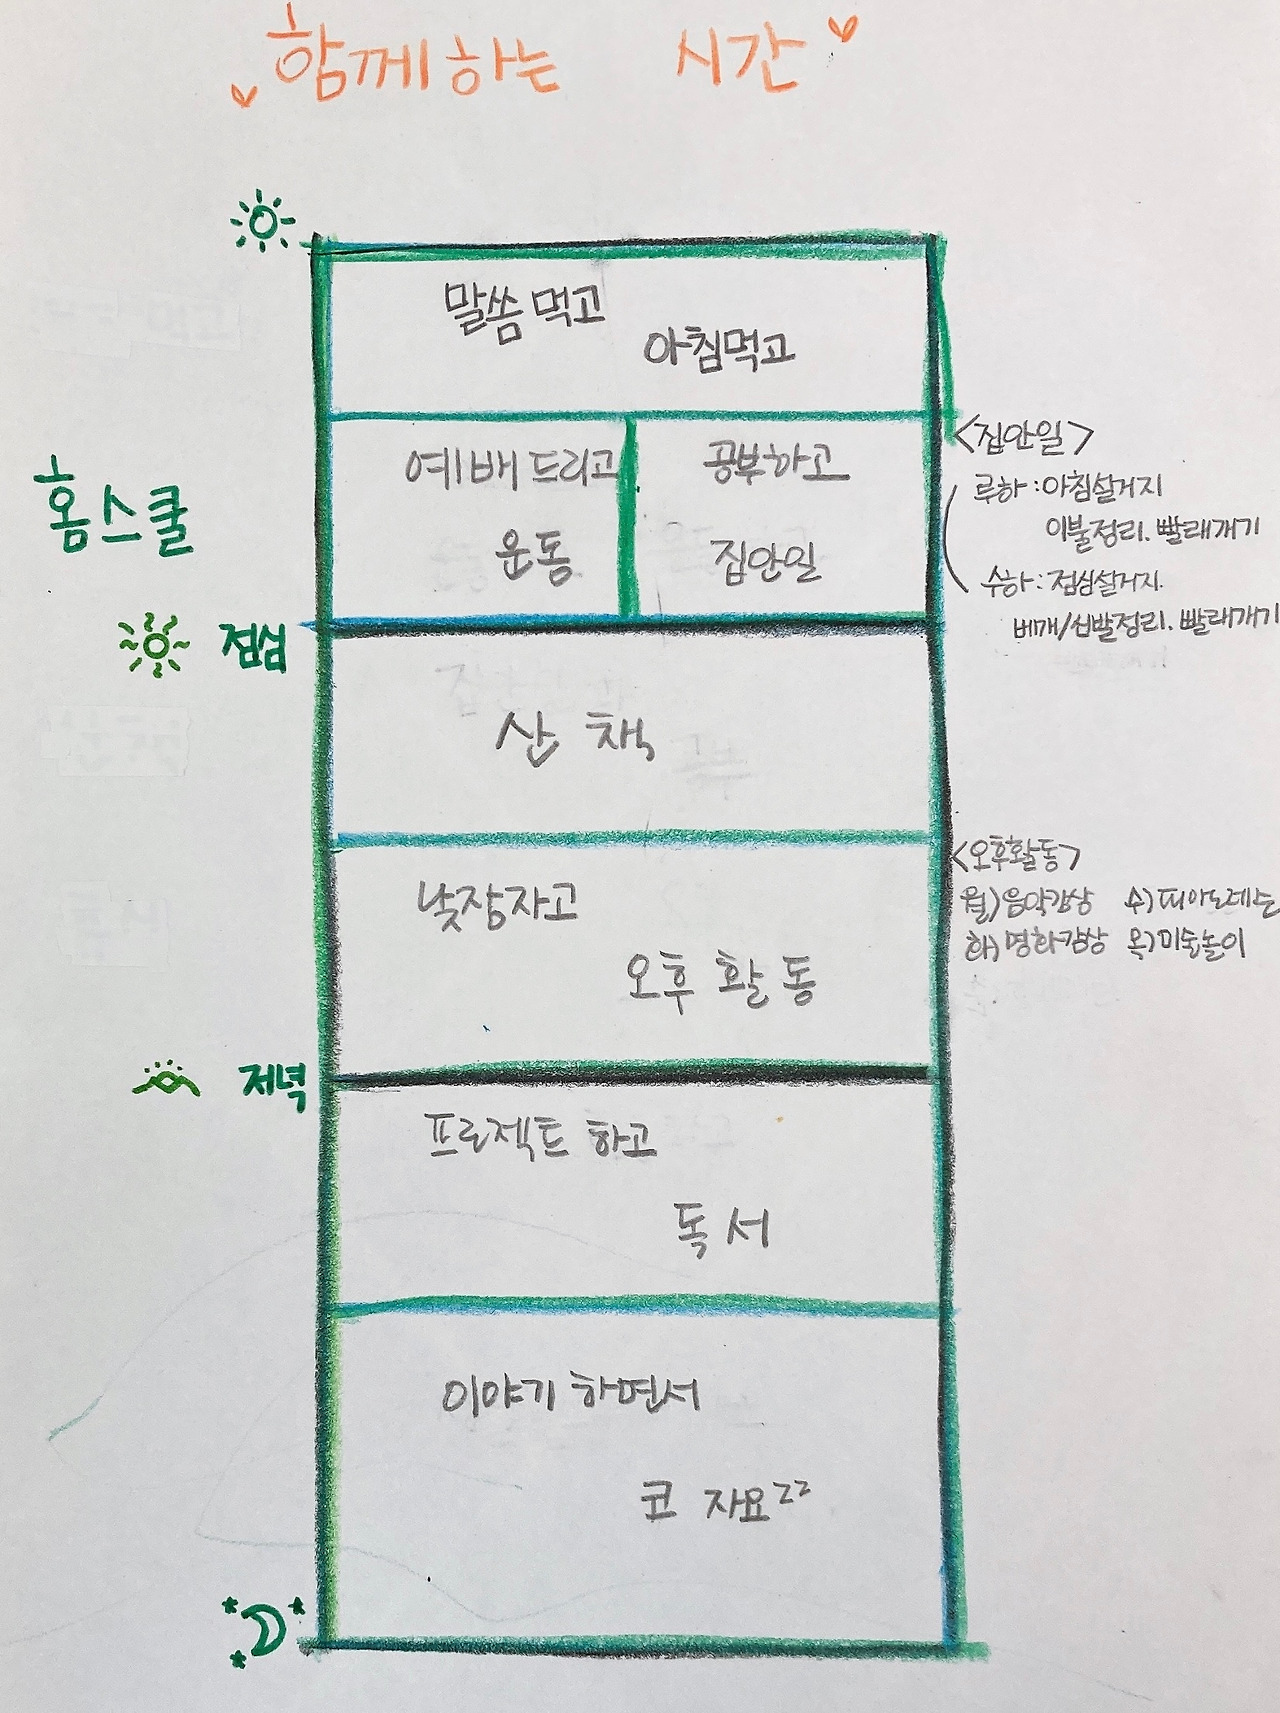 함께하는 시간
말씀 먹고
아침먹고
홈스쿨
예배 드리고
운동
공부하고
집안일
<집안일>
루하 : 아침설거지
이불정리. 빨래개기
수하 : 점심설거지.
베개/신빨정리. 빨래개기
점심
산책
낮잠자고
오후 활동
<오후활동>
월) 음악감상 수) 피아노레슨
화) 명화감상 목) 미술놀이
저녁
프로젝트 하고
독서
이야기 하면서
코 자요zz